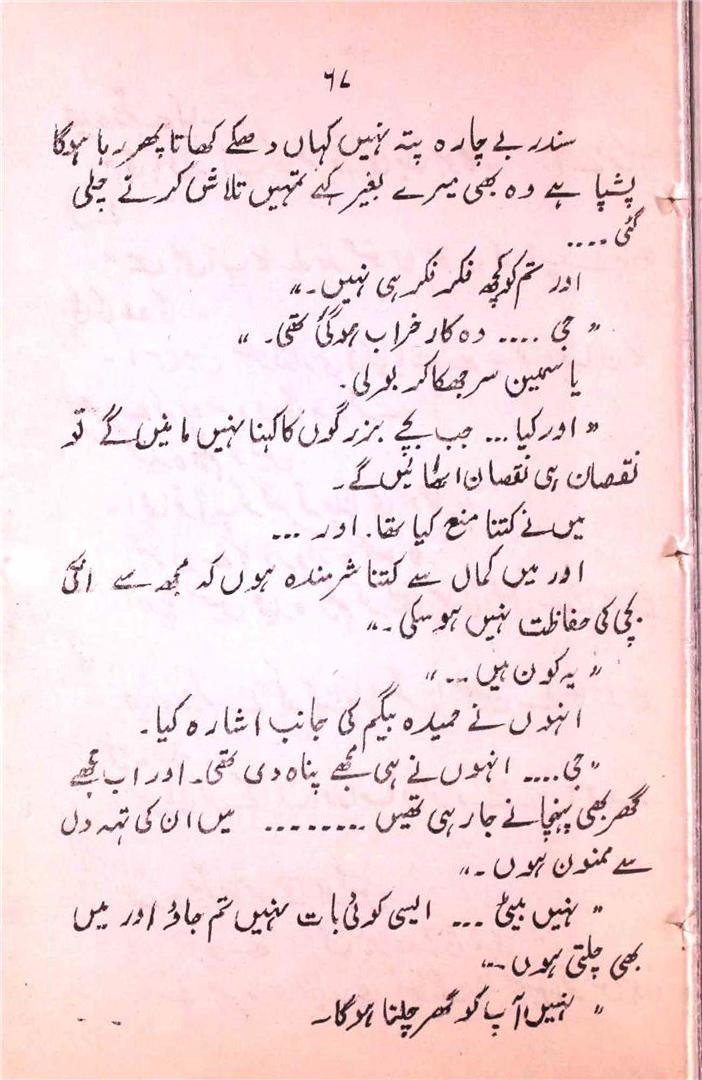 ۶۷
سندر بے چارہ پتہ نہیں کہاں دھکے کھاتا پھر رہا ہوگا
پشپا ہے وہ بھی میرے بغیر کہے تمہیں تلاش کرنے چلی
گئی ....
اور تم کو کچھ فکر فکر ہی نہیں۔"
"جی .... وہ کار خراب ہوگئی تھی۔"
یاسمین سر جھکا کر بولی۔
"اور کیا ... جب بچے بزرگوں کا کہنا نہیں مانیں گے تو
نقصان ہی نقصان اٹھائیں گے۔
میں نے کتنا منع کیا تھا۔ اور ...
اور میں کمال سے کتنا شرمندہ ہوں کہ مجھ سے اسکی
بچی کی حفاظت نہیں ہو سکی۔"
"یہ کون ہیں ..."
انہوں نے حمیدہ بیگم کی جانب اشارہ کیا۔
"جی .... انہوں نے ہی مجھے پناہ دی تھی۔ اور اب مجھے
گھر بھی پہنچانے جا رہی تھیں ........ میں ان کی تہہ دل
سے ممنون ہوں۔"
"نہیں بیٹی ... ایسی کوئی بات نہیں تم جاؤ اور میں
بھی چلتی ہوں۔"
"نہیں آپ کو گھر چلنا ہوگا۔